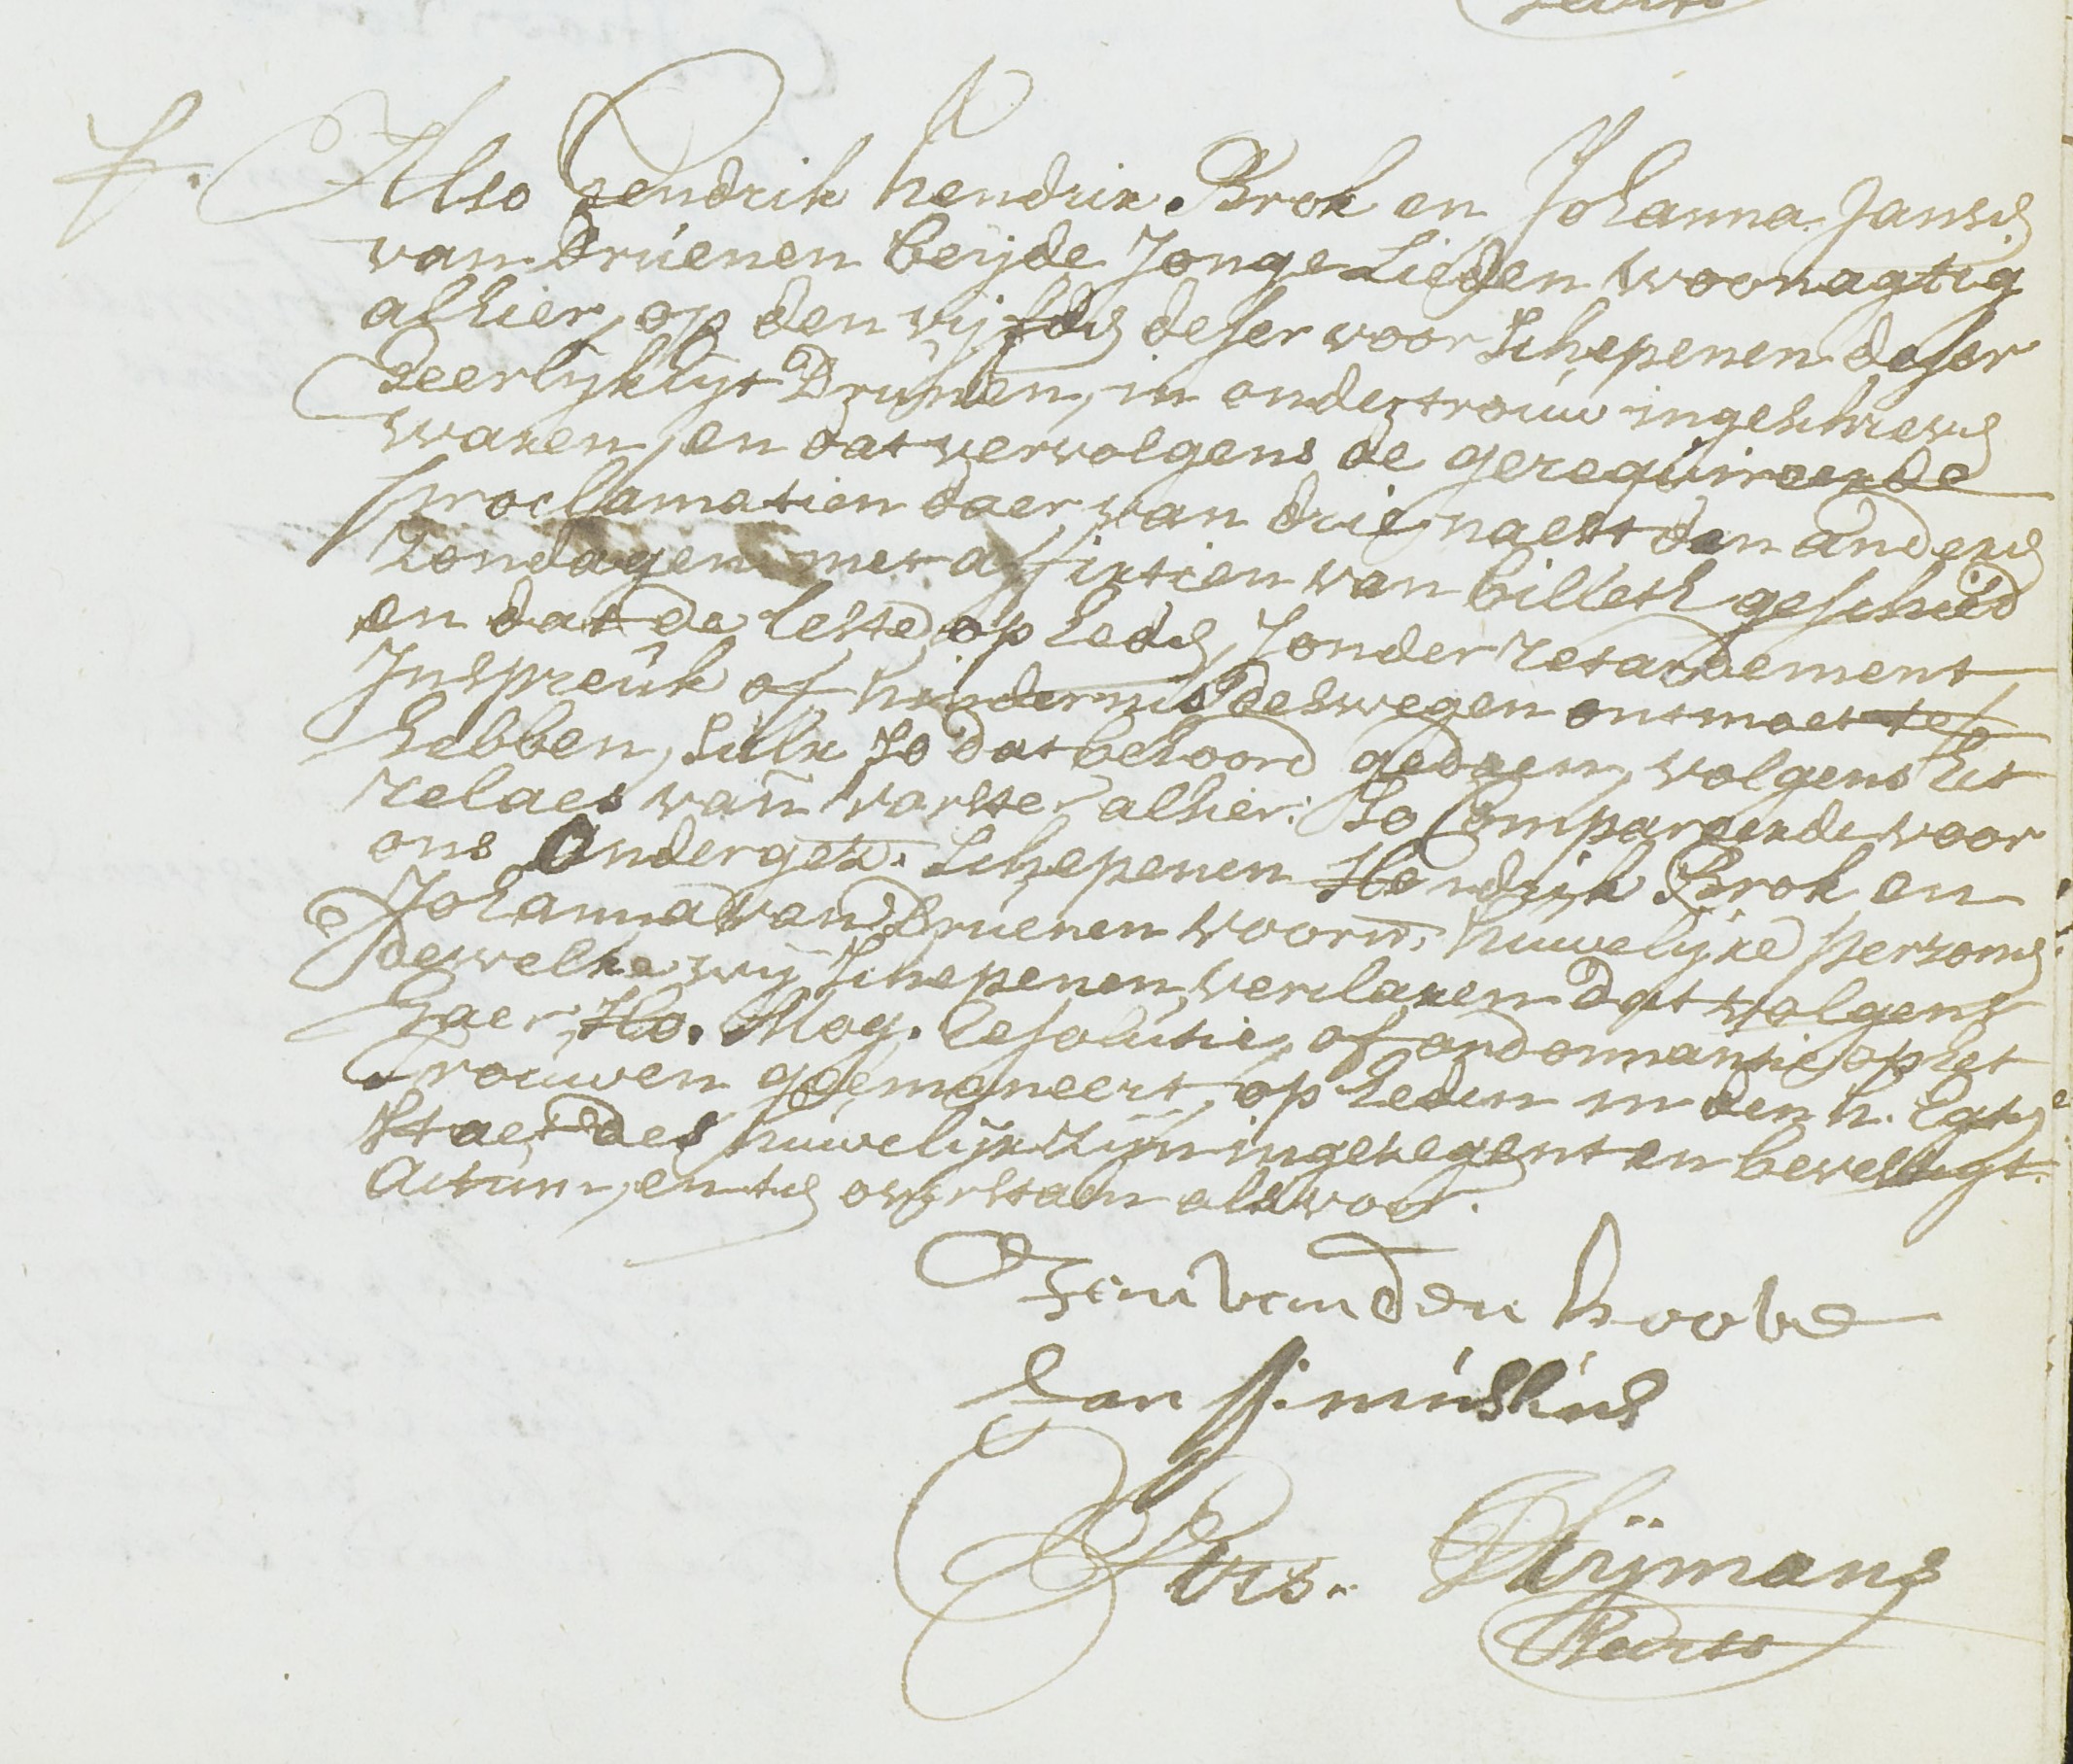 Also Hendrik hendrix Brok en Johanna Jansen
van Druenen beijde Jonge Lieden woonagtig
alhier, op den vijfden deser voor Schepenen deser
Heerlijkhijt Drunen, in ondertrouw ingeschreven
waren, en dat vervolgens de gerequireerde
proclamatien daer van drie naest den anderen
zondagen met affixtien van billeth geschied
en dat de leste op heden, zonder retardement
Inspreuk of hindernis deswegen ontmoet te
hebben, sulx so dat behoord gedaen, volgens het
relaes van vorster alhier: So Compareerde voor
ons Onderget. Schepenen Hendrik Brok en
Johanna van Druenen voorn. huwelijxe persoonen
dewelke wij Schepenen, verclaren dat volgens
Haer Ho. Mog. Resolutie, of ordonnantie op het
trouwen geemaneert, op heden in den h. Egten
Staet des huwelijx zijn ingesegent en bevestigt.
Actum, en ten overstaen als voor.
Jan van den hoove
Jan P. muskus
Vis. Thijmans
Secrts